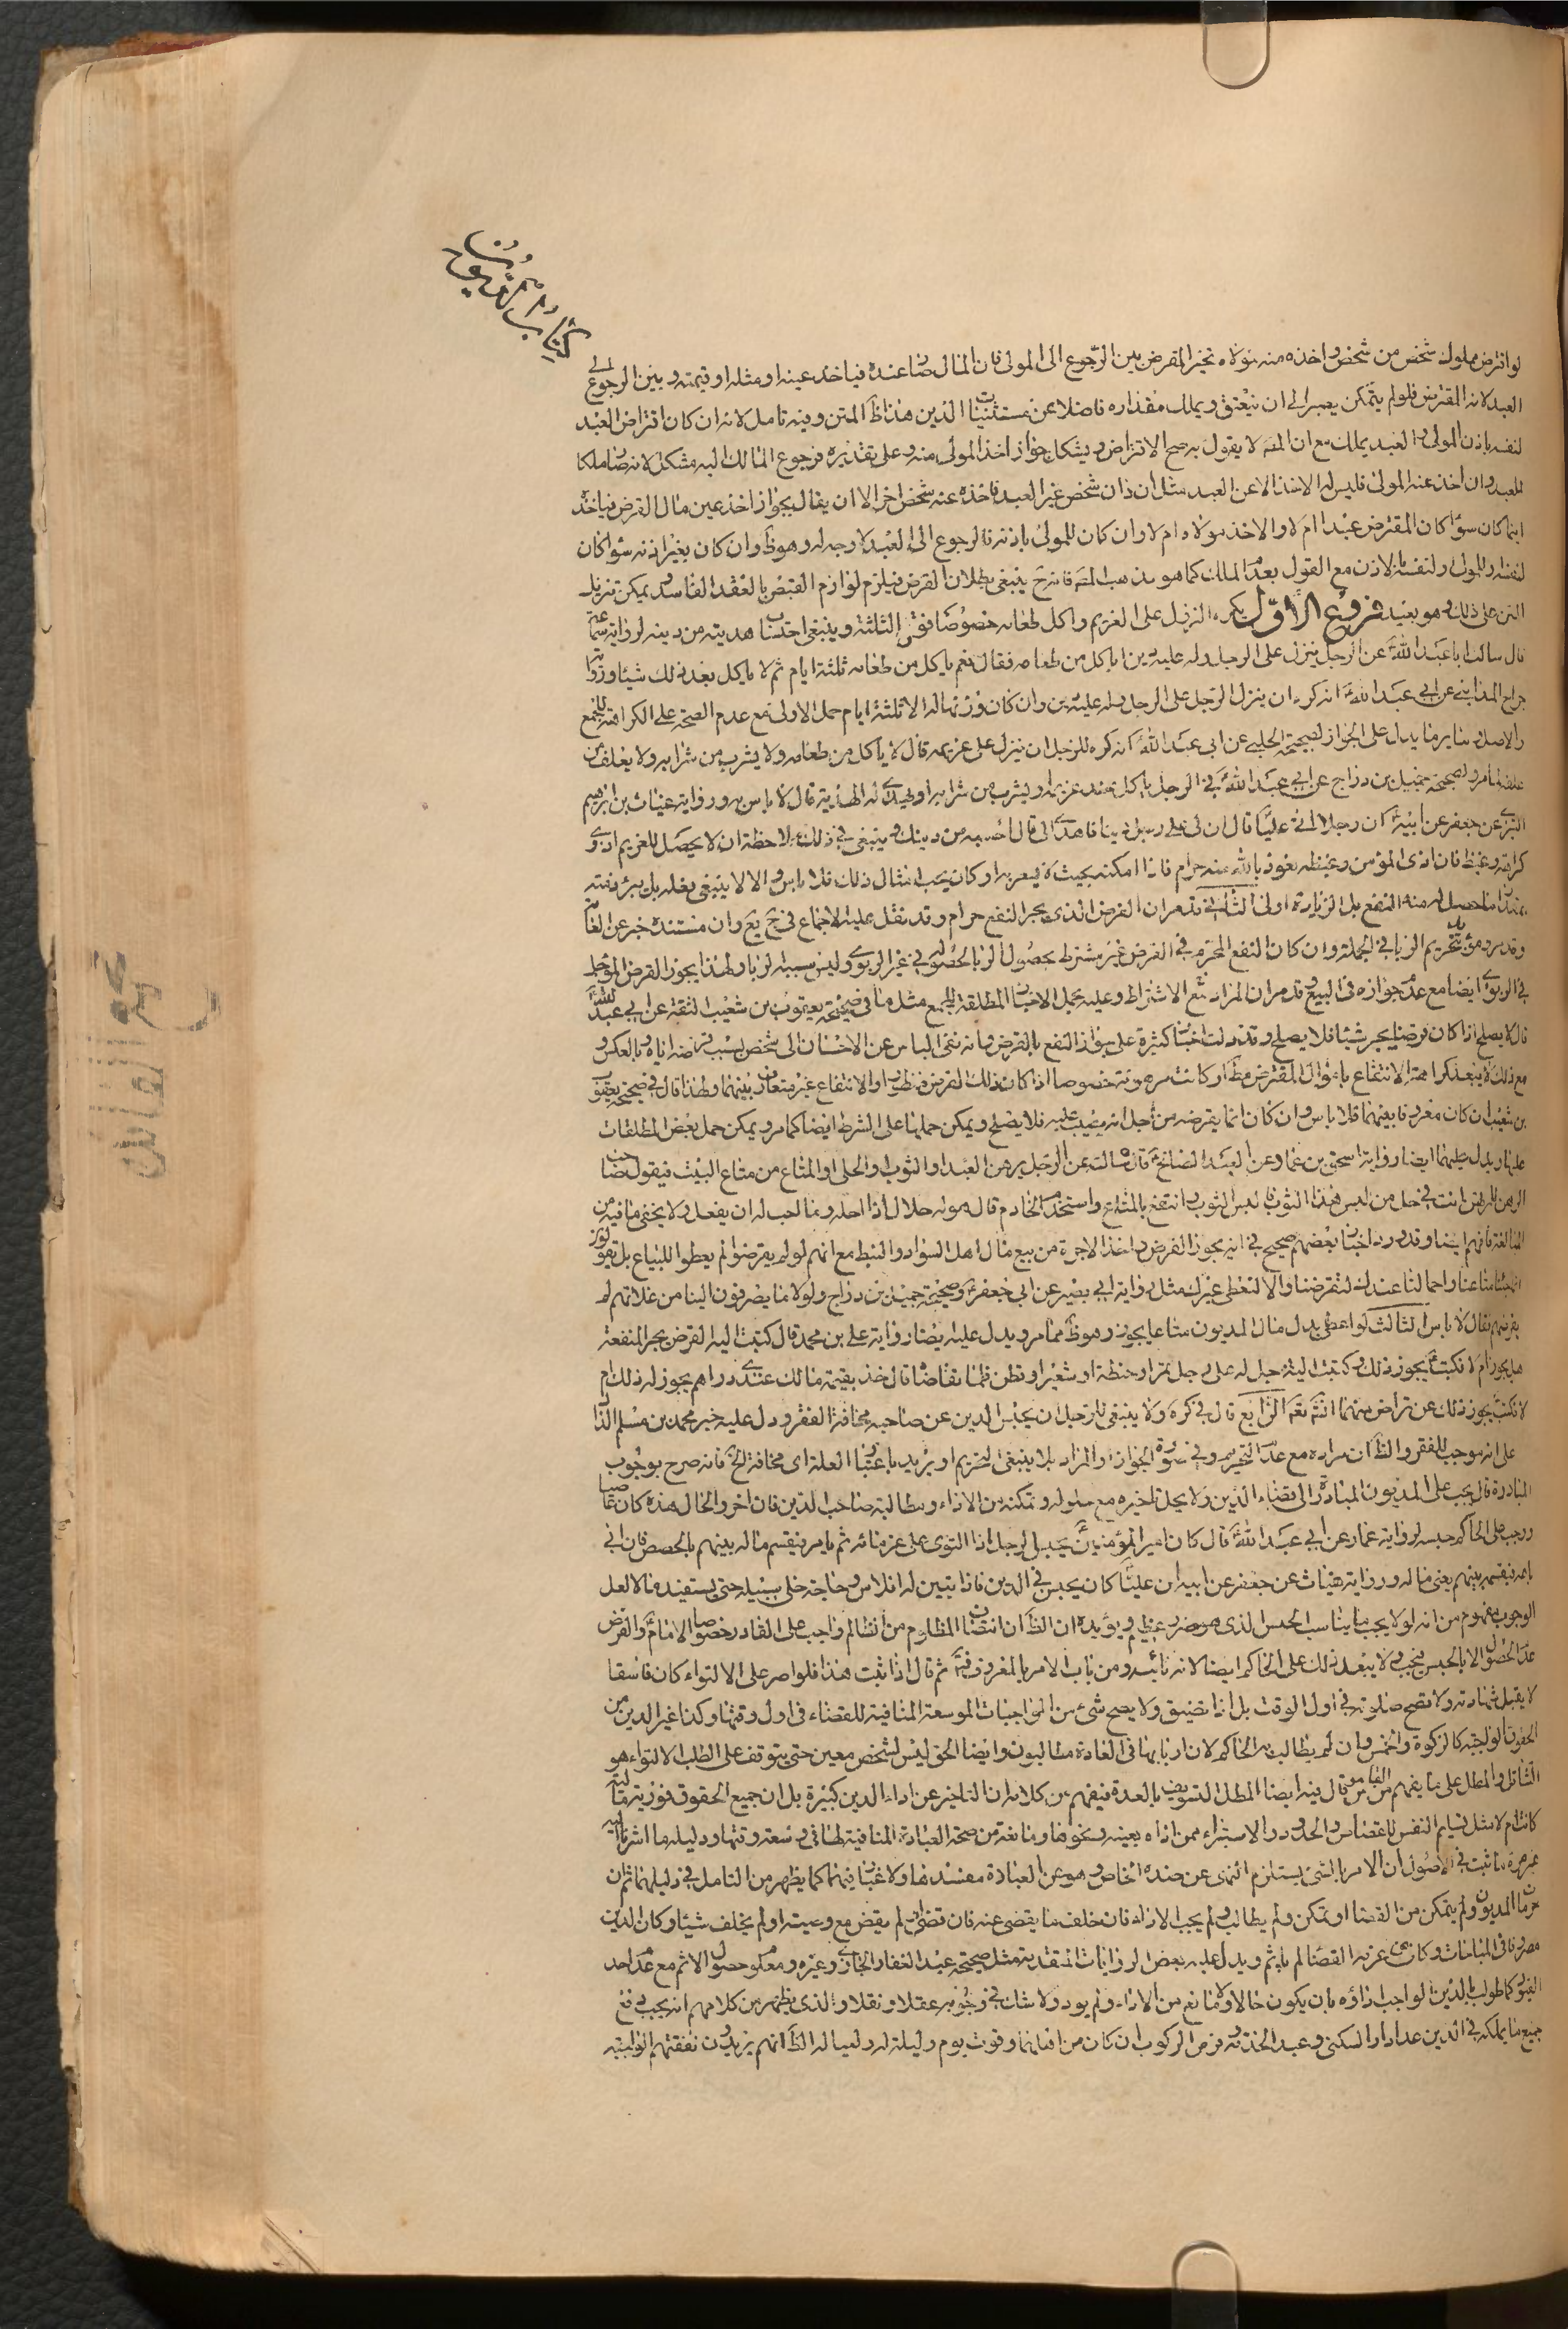 كتاب الديون
لو اقترض مملوك شخص من شخص واخذه منه مولاه تخير المقرض بين الرجوع الى المولى فان المال صار عنده فياخذ عينه او مثله او قيمته وبين الرجوع الى
العبد لانه المقترض فلو لم يتمكن يصبر الى ان ينعتق ويملك مقداره فاضلا عن مستثنيات الدين هذا ظ المتن وفيه تامل لانه ان كان اقتراض العبد
لنفسه باذن المولى والعبد يملك مع ان المص لا يقول به صح الاقتراض ويشكل جواز اخذ المولى منه وعلى تقديره فرجوع المالك اليه مشكل لانه صار ملكا
للعبد وان اخذ عنه المولى فليس له الاخذ الا عن العبد مثل ان ذان شخص غير العبد فاخذه عنه شخص اخر الا ان يقال بجواز اخذ عين مال القرض فياخذ
اينما كان سواء كان المقترض عبدا ام لا والاخذ مولاه ام لا وان كان للمولى باذنه فالرجوع الى العبد لا وجه له وهو ظ وان كان بغير اذنه سواء كان
لنفسه او للمولى او لنفسه بالاذن مع القول بعدم الملك كما هو مذهب المص فانه ح ينبغي بطلان القرض فيلزم لوازم القبض بالعقد الفاسد ويمكن تنزيل
المتن على ذلك وهو بعيد فروع الاول يكره النزول على الغريم واكل طعامه خصوصا فوق الثلثة وينبغي احتساب هديته من دينه لرواية سماعة
قال سالت ابا عبد الله عن الرجل ينزل على الرجل وله عليه دين اياكل من طعامه فقال نعم ياكل من طعامه ثلثة ايام ثم لا ياكل بعد ذلك شيئا ورواية
جراح المدايني عن ابي عبد الله انه كره ان ينزل الرجل على الرجل وله عليه دين وان كان وزنها له الا ثلثة ايام حمل الاولى مع عدم الصحة على الكراهة للجمع
والاصل وساير ما يدل على الجواز لصحيحة الحلبي عن ابي عبد الله انه كره للرجل ان ينزل على غريمه قال لا ياكل من طعامه ولا يشرب من شرابه ولا يعلف من
علفه لما مر ولصحيحة جميل بن دراج عن ابي عبد الله في الرجل ياكل عند غريمه او يشرب من شرابه او يهدى له الهدية قال لا باس به ورواية غياث بن ابراهيم
عن جعفر عن ابيه ان رجلا اتى عليا قال ان لي على رجل دينا فاهدى الي قال احسبه من دينك وينبغي في ذلك ملاحظة ان لا يحصل للغريم اذى و
كراهة وغيظ فان اذى المؤمن وغيظه نعوذ بالله منه حرام فاذا امكنه بحيث لا يسعر به او كان يحب امثال ذلك فلا باس والا لا ينبغي فعله بل يبرء ذمته
بمقدار ما حصل له منه النفع بل الزيادة اولى الثاني قد مر ان القرض الذي يجر النفع حرام وقد نقل عليه الاجماع في ح يع وان مستنده خبر عن العامة
وقد يرد مؤيد تحريم الربا في الجملة وان كان النفع المحرم في القرض غير مشترط بحصول الربا لحصوله في غير الربوي وليس مسببه لربا ولهذا يجوز القرض المؤجل
في الربوي ايضا مع عدم جوازه في البيع وقد مر ان المراد مع الاشتراط وعليه تحمل الاخبار المطلقة للجمع مثل ما في صحيحة يعقوب بن شعيب الثقة عن ابي عبد الله
قال لا يصلح اذا كان قرضا يجر شيئا فلا يصلح وقد دلت اخبار كثيرة على جواز النفع بالقرض وانه نفى الباس عن الاحسان الى شخص بسبب قرضه اياه وبالعكس و
مع ذلك لا يبعد كراهة الانتفاع باموال المقترض مط او كانت مرهونة خصوصا اذا كان ذلك القرض منظورا او الانتفاع غير متعارف بينهما ولهذا قال في صحيحة يعقوب
بن شعيب ان كان معروفا بينهما فلا باس وان كان انما يقرضه من اجل انه يصيب عليه فلا يصلح ويمكن حملها على الشرط ايضا كما مر ويمكن حمل بعض المطلقات
عليها ويدل عليهما ايضا رواية اسحق بن عمار عن العبد الصالح قال سالته عن الرجل يرهن العبد او الثوب او الحلي او المتاع من متاع البيت فيقول صاحب
الرهن للمرتهن انت في حل من لبس هذا الثوب فالبس الثوب وانتفع بالمتاع واستخدم الخادم قال هو له حلال اذا احله وما احب له ان يفعل ولا يخفى ما فيه من
المبالغة فافهم ايضا وقد ورد اخبار بعضهم صحيح في انه يجوز القرض واخذ الاجرة من بيع مال اهل السواد والنبط مع انهم لو لم يقرضوا لم يعطوا للبياع بل يقولون
انما متاعنا واحمالنا عندك لتقرضنا والا لنعطي غيرك مثل رواية ابي بصير عن ابي جعفر وصحيحة جميل بن دراج ولولا ما يصرفون الينا من غلاتهم لم
نقرضهم فقال لا باس الثالث لو اعطى بدل مال المديون متاعا يجوز وهو ظ مما مر ويدل عليه ايضا رواية علي بن محمد قال كتبت اليه القرض يجر المنفعة
هل يجوز ام لا فكتب يجوز ذلك وكتبت اليه رجل له على رجل تمر او حنطة او شعير او قطن فلما تقاضاه قال خذ بقيمة مالك عندي دراهم يجوز له ذلك ام
لا فكتب يجوز ذلك عن تراض بينهما انشاء الله تعالى الرابع قال في كره ولا ينبغي للرجل ان يحبس الدين عن صاحبه مخافة الفقر ودل عليه خبر محمد بن مسلم الدال
على انه موجب للفقر والظ ان مراده مع عدم التحريم وفي صورة الجواز او المراد بلا ينبغي التحريم او يريد باعتبار العلة اي مخافة الخ فانه صرح بوجوب
المبادرة قال يجب على المديون المبادرة الى قضاء الدين ولا يحل تاخيره مع حلوله وتمكنه من الاداء ومطالبة صاحب الدين فان اخر والحال هذه كان عاصيا
ووجب على الحاكم حبسه لرواية عمار عن ابي عبد الله قال كان امير المؤمنين يحبس الرجل اذا التوى على غرمائه ثم يامر فيقسم ماله بينهم بالحصص فان ابى
باعه فيقسمه بينهم يعني ماله ورواية غياث عن جعفر عن ابيه ان عليا كان يحبس في الدين فاذا تبين له افلاس وحاجة خلى سبيله حتى يستفيد مالا لعل
الوجوب مفهوم من انه لو لا يجب ما يناسب الحبس الذي هو ضرر عظيم ويؤيده ان الظ ان انتصاف المظلوم من الظالم واجب على القادر خصوصا الامام والفرض
عدم الحصول الا بالحبس فيجب ولا يبعد ذلك على الحاكم ايضا لانه نائبه ومن باب الامر بالمعروف ثم قال اذا ثبت هذا فلو اصر على الالتواء كان فاسقا
لا يقبل شهادته ولا تصح صلوته في اول الوقت بل اذا تضيق ولا يصح شيء من الواجبات الموسعة المنافية للقضاء في اول وقتها وكذا غير الدين من
الحقوق الواجبة كالزكوة والخمس وان لم يطالب به الحاكم لان اربابها في العادة مطالبون وايضا الحق ليس لشخص معين حتى يتوقف على الطلب الالتواء هو
التثاقل والمطل على ما يفهم من القاموس قال فيه ايضا المطل التسويف بالعدة فيفهم من كلامه ان التاخير عن اداء الدين كبيرة بل ان جميع الحقوق فورية مالية
كانت ام لا مثل تسليم النفس للقصاص والحدود والاستبراء ممن اذاه بعينه ونحوها ومانعة من صحة العبادة المنافية لها في سعة وقتها ودليله ما اشرنا اليه
غير مرة ما ثبت في الاصول ان الامر بالشيء يستلزم النهي عن ضده الخاص وهو عن العبادة مفسد لها ولا غبار فيهما كما يظهر من التامل في دليلهما ثم ان
غرما المديون ولم يتمكن من القضاء او تمكن ولم يطالب ولم يجب الاداء فان خلف ما يقضى عنه فان قضى لم يقض مع وصيته او لم يخلف شيئا وكان الدين
مصروفا في المباحات وكان من عزمه القضاء لم ياثم ويدل عليه بعض الروايات المتقدمة مثل صحيحة عبد الغفار الجازي وغيره ومعلوم حصول الاثم مع عدم احد
القيود كما طولب بالدين الواجب اداؤه بان يكون حالا ولا مانع من الاداء ولم يود ولا شك في وجوبه عقلا ونقلا والذي يظهر من كلامهم انه يجب دفع
جميع ما يملكه في الدين عدا دار السكنى وعبد الخدمة وفرس الركوب ان كان من اهلها وقوت يوم وليلة له ولعياله الظ انهم يريدون نفقتهم الواجبة